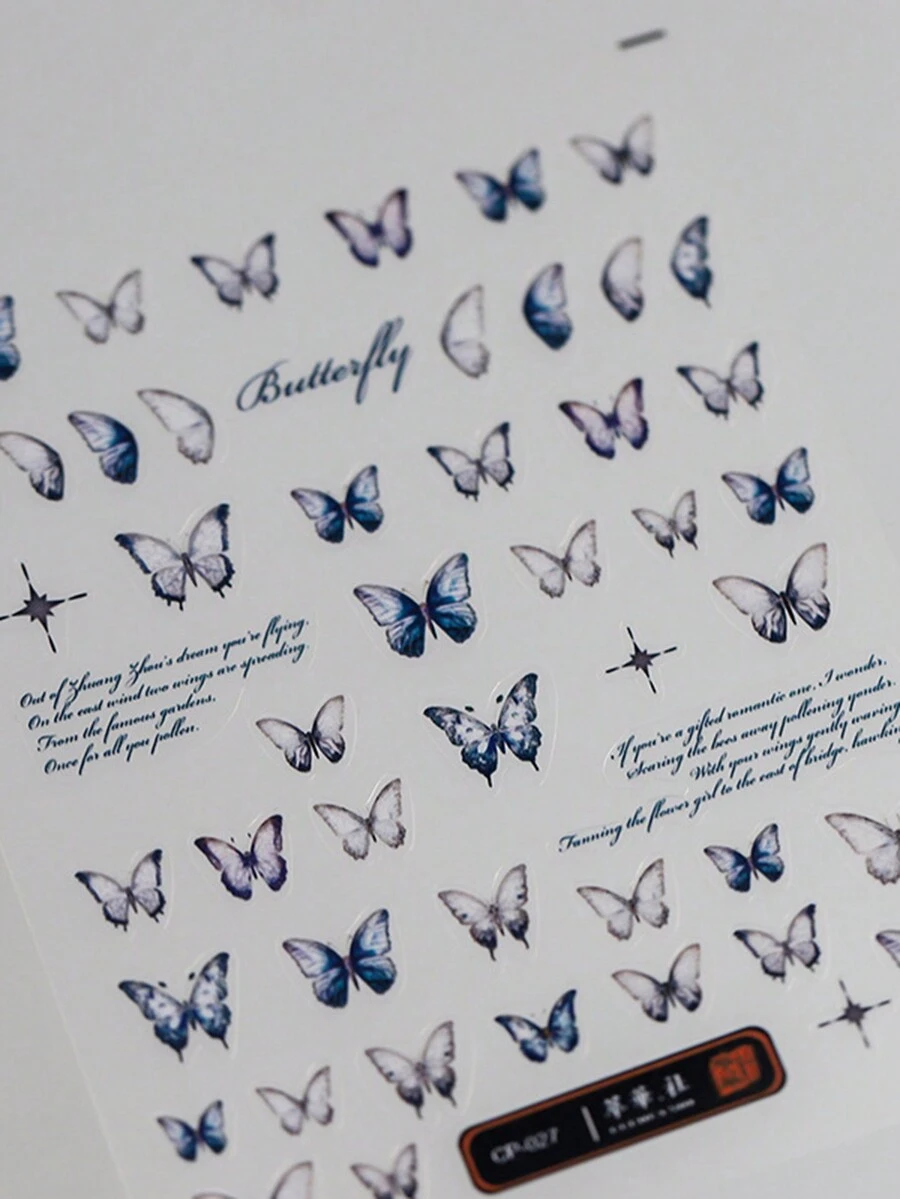 Butterfly
Out of Zhuang Zhou's dream you're flying.
On the east wind two wings are spreading.
From the famous gardens.
Once for all you pollen.
If you're a gifted romantic one. I wonder.
Scaring the bees away pollening yonder.
With your wings gently waving
Tanning the flower girl to the east of bridge. hawkin
CP-027